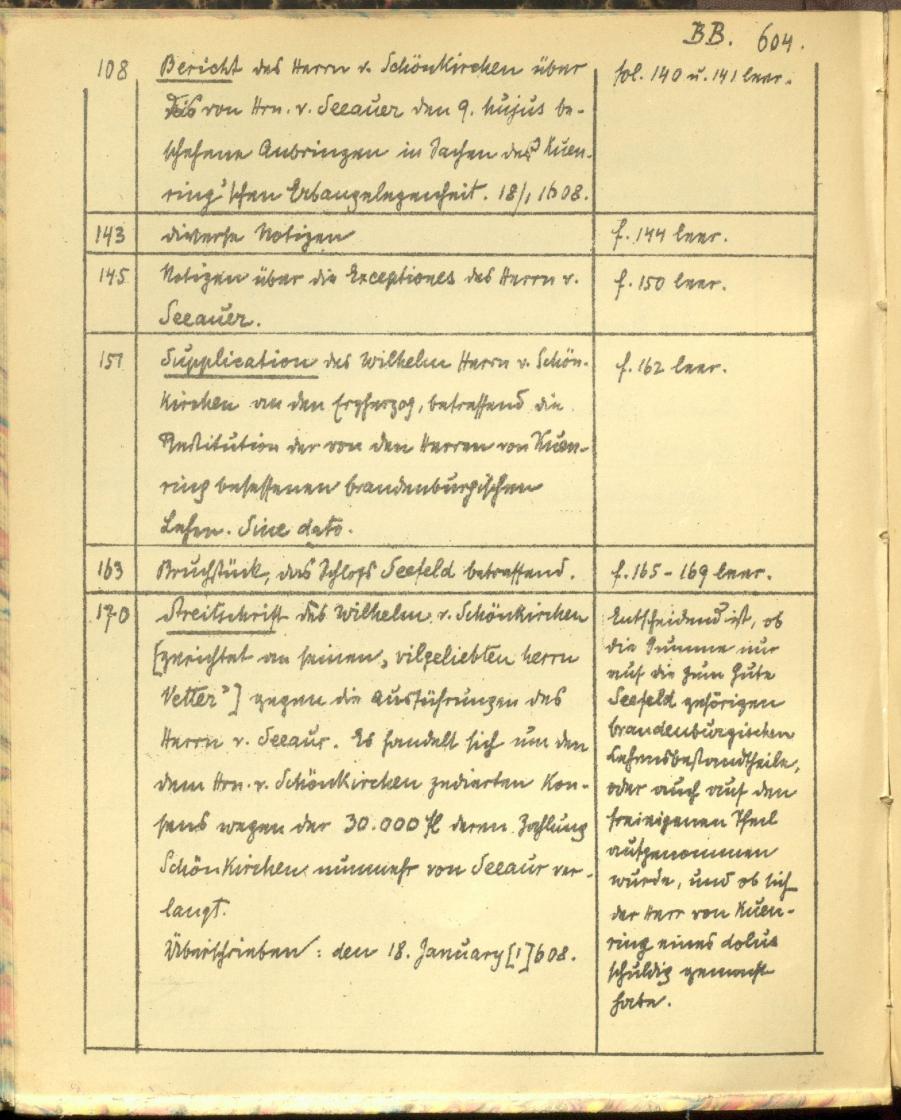 BB. 604.
108 Bericht des Herrn v. Schönkirchen über
von Hrn. v. Seeauer den 9. hujus be-
schehene Anbringen in Sachen der Kuen-
ring'schen Erbangelegenheit. 18/1 1608.
fol. 140 u. 141 leer.
143 diverse Notizen
f. 144 leer.
145 Notizen über die Exceptiones des Herrn v.
Seeauer.
f. 150 leer.
151 Supplication des Wilhelm Herrn v. Schön-
kirchen an den Erzherzog, betreffend die
Restitution der von den Herren von Kuen-
ring besessenen brandenburgischen
Lehen. Sine dato.
f. 162 leer.
163 Bruchstück, das Schloß Seefeld betreffend.
f. 165-169 leer.
170 Streitschrift des Wilhelm v. Schönkirchen
[gerichtet an seinen „vilgeliebten herrn
Vetter"] gegen die Ausführungen des
Herrn v. Seeaur. Es handelt sich um den
dem Hrn. v. Schönkirchen zedierten Kon-
sens wegen der 30.000 fl deren Zahlung
Schönkirchen nunmehr von Seeaur ver-
langt.
Überschrieben: den 18. January [1]608.
Entscheidend ist, ob
die Summe nur
auf die zum Gute
Seefeld gehörigen
brandenburgischen
Lehensbestandtheile,
oder auch auf den
freieigenen Theil
aufgenommen
wurde, und ob sich
der Herr von Kuen-
ring eines dolus
schuldig gemacht
habe.